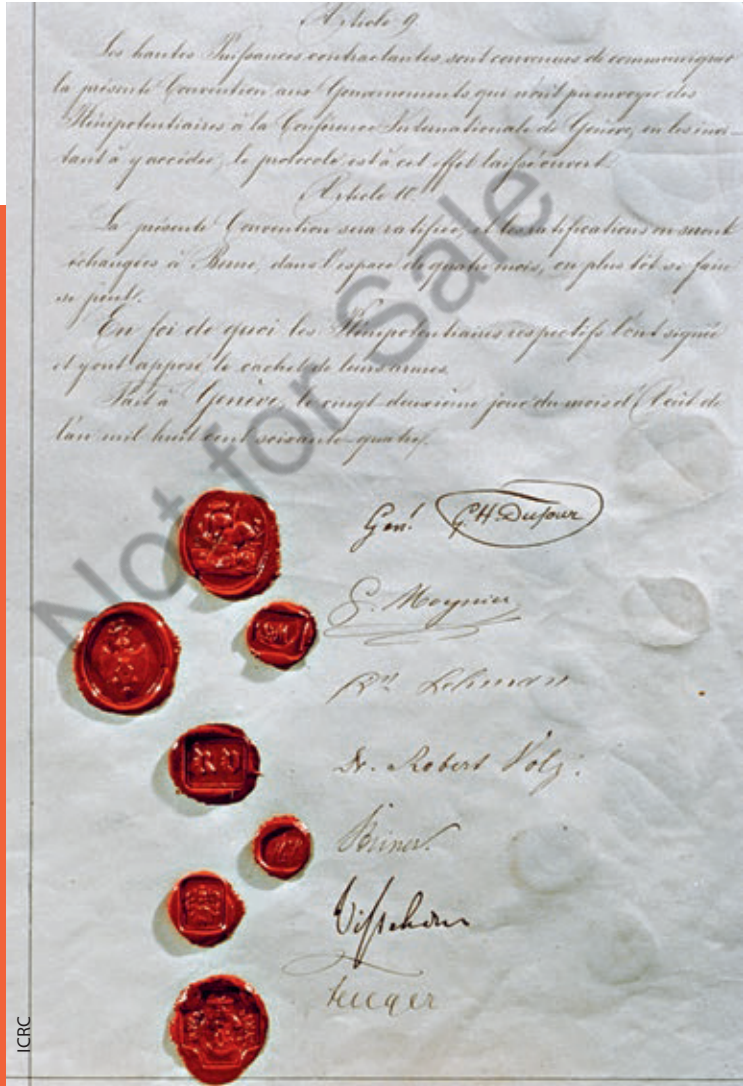 Article 9.
Les hautes Puissances contractantes sont convenues de communiquer
la présente Convention aux Gouvernements qui n'ont pu envoyer des
Plénipotentiaires à la Conférence Internationale de Genève, en les invi-
tant à y accéder; le protocole est à cet effet laissé ouvert.
Article 10.
La présente Convention sera ratifiée, et les ratifications en seront
échangées à Berne, dans l'espace de quatre mois, ou plus tôt si faire
se peut.
En foi de quoi les Plénipotentiaires respectifs l'ont signée
et y ont apposé le cachet de leurs armes.
Fait à Genève, le vingt deuxième jour du mois d'Août de
l'an mil huit cent soixante-quatre.
Genl G. H. Dufour
G. Moynier
Dr Lehmann
Dr. Robert Volz.
Steiner.
Visschers
Fenger
Not for Sale
ICRC